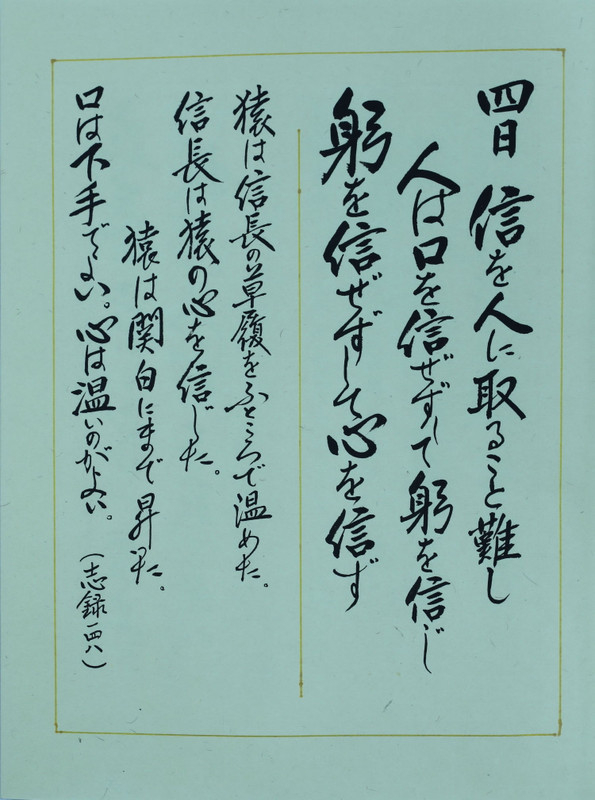 四日 信を人に取ること難し
人は口を信ぜずして躬を信じ
躬を信ぜずして心を信ず
猿は信長の草履をふところで温めた。
信長は猿の心を信じた。
猿は関白にまで昇った。
口は下手でよい。心は温いのがよい。
（志録一四八）